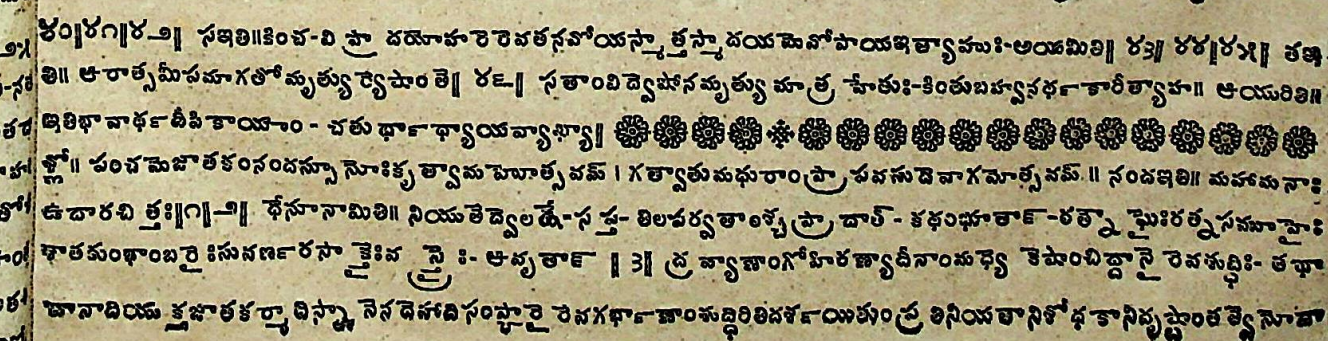 ౪౦॥౪౧॥౪౨॥ సఇతి॥కించ-వి ప్రా దయోహరేరేవతనవోయస్మా త్తస్మా దయమేవోపాయఇత్యాహుః-అయమితి॥ ౪౩॥ ౪౪॥౪౫॥ తఇ
తి॥ ఆరాత్సమీపమాగతోమృత్యు ర్యేషాం తే॥ ౪౬॥ సతాంవి ద్వేషోనమృత్యు మాత్ర హేతుః-కింతుబహ్వనర్థకారీత్యాహ॥ ఆయురితి॥
ఇతిభావార్థదీపికాయాం - చతుర్థాధ్యాయవ్యాఖ్యా॥
శ్లో॥ పంచమేజాతకంనందస్సూనోఃకృత్వామహోత్సవమ్ । గత్వాతుమధురాంప్రా పవసుదేవాగమోత్సవమ్ ॥ నందఇతి॥ మహామనాః
ఉదారచి త్తః॥౧॥౨॥ ధేనూనామితి॥ నియుతేద్వేలక్షే-స ప్త- తిలపర్వతాంశ్చ ప్రా దాత్ - కథంభూతాన్ -రత్నౌ ఘైఃరత్నసమూహైః
శాతకుంభాంబరైః సువర్ణరసా క్తైఃవ స్త్రైః- ఆవృతాన్ ॥ ౩॥ ద్ర వ్యాణాంగోహిరణ్యాదీనాంమధ్యే కేషాంచిద్దానై రేవశుద్ధిః- తథా
దానాదియుక్తజాతకర్మా దిస్నా నేనదేహాదిసంస్కారై రేవగర్భాణాంశుద్ధిరితిదర్శయితుంప్ర తినియతానిశోధకానిదృష్టాంతత్వేనోదా